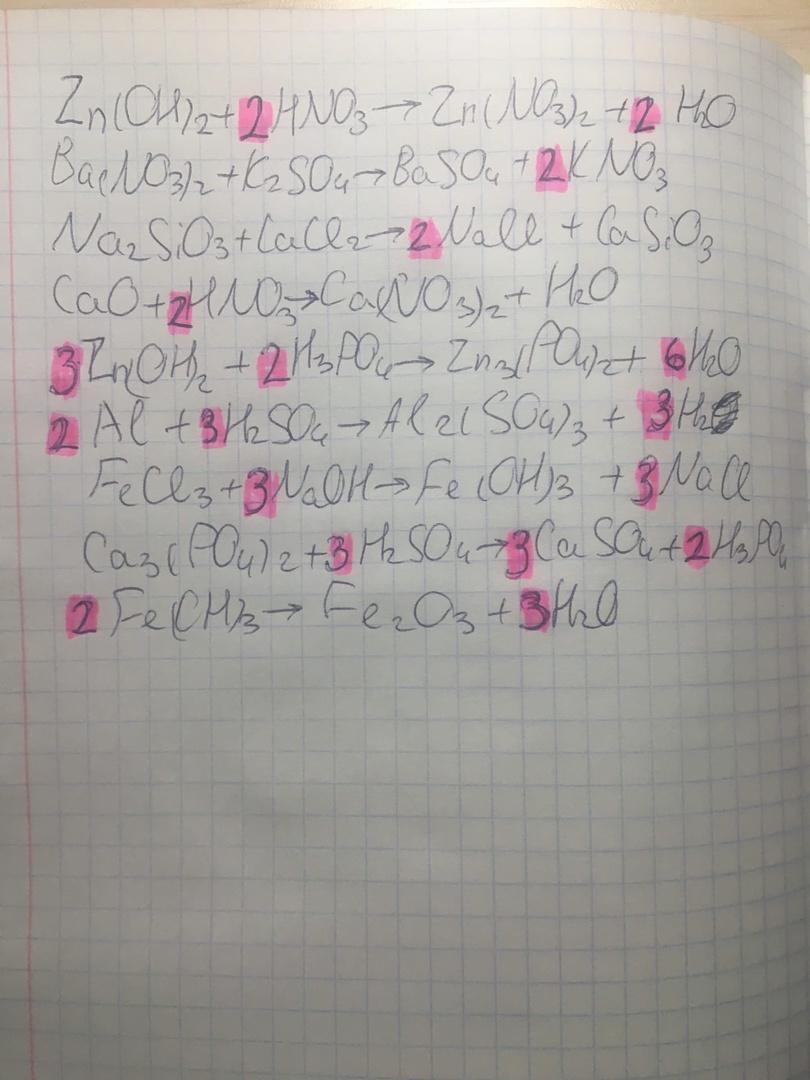 Zn(OH)2+2HNO3→Zn(NO3)2+2 H2O
Ba(NO3)2+K2SO4→BaSO4+2KNO3
Na2SiO3+CaCl2→2NaCl + CaSiO3
CaO+2HNO3→Ca(NO3)2+ H2O
3Zn(OH)2 + 2H3PO4→Zn3(PO4)2+ 6H2O
2 Al +3H2SO4→Al2(SO4)3 + 3H2
FeCl3+3NaOH→Fe(OH)3 +3NaCl
Ca3(PO4)2+3H2SO4→3CaSO4+2H3PO4
2 Fe(OH)3→ Fe2O3 +3H2O